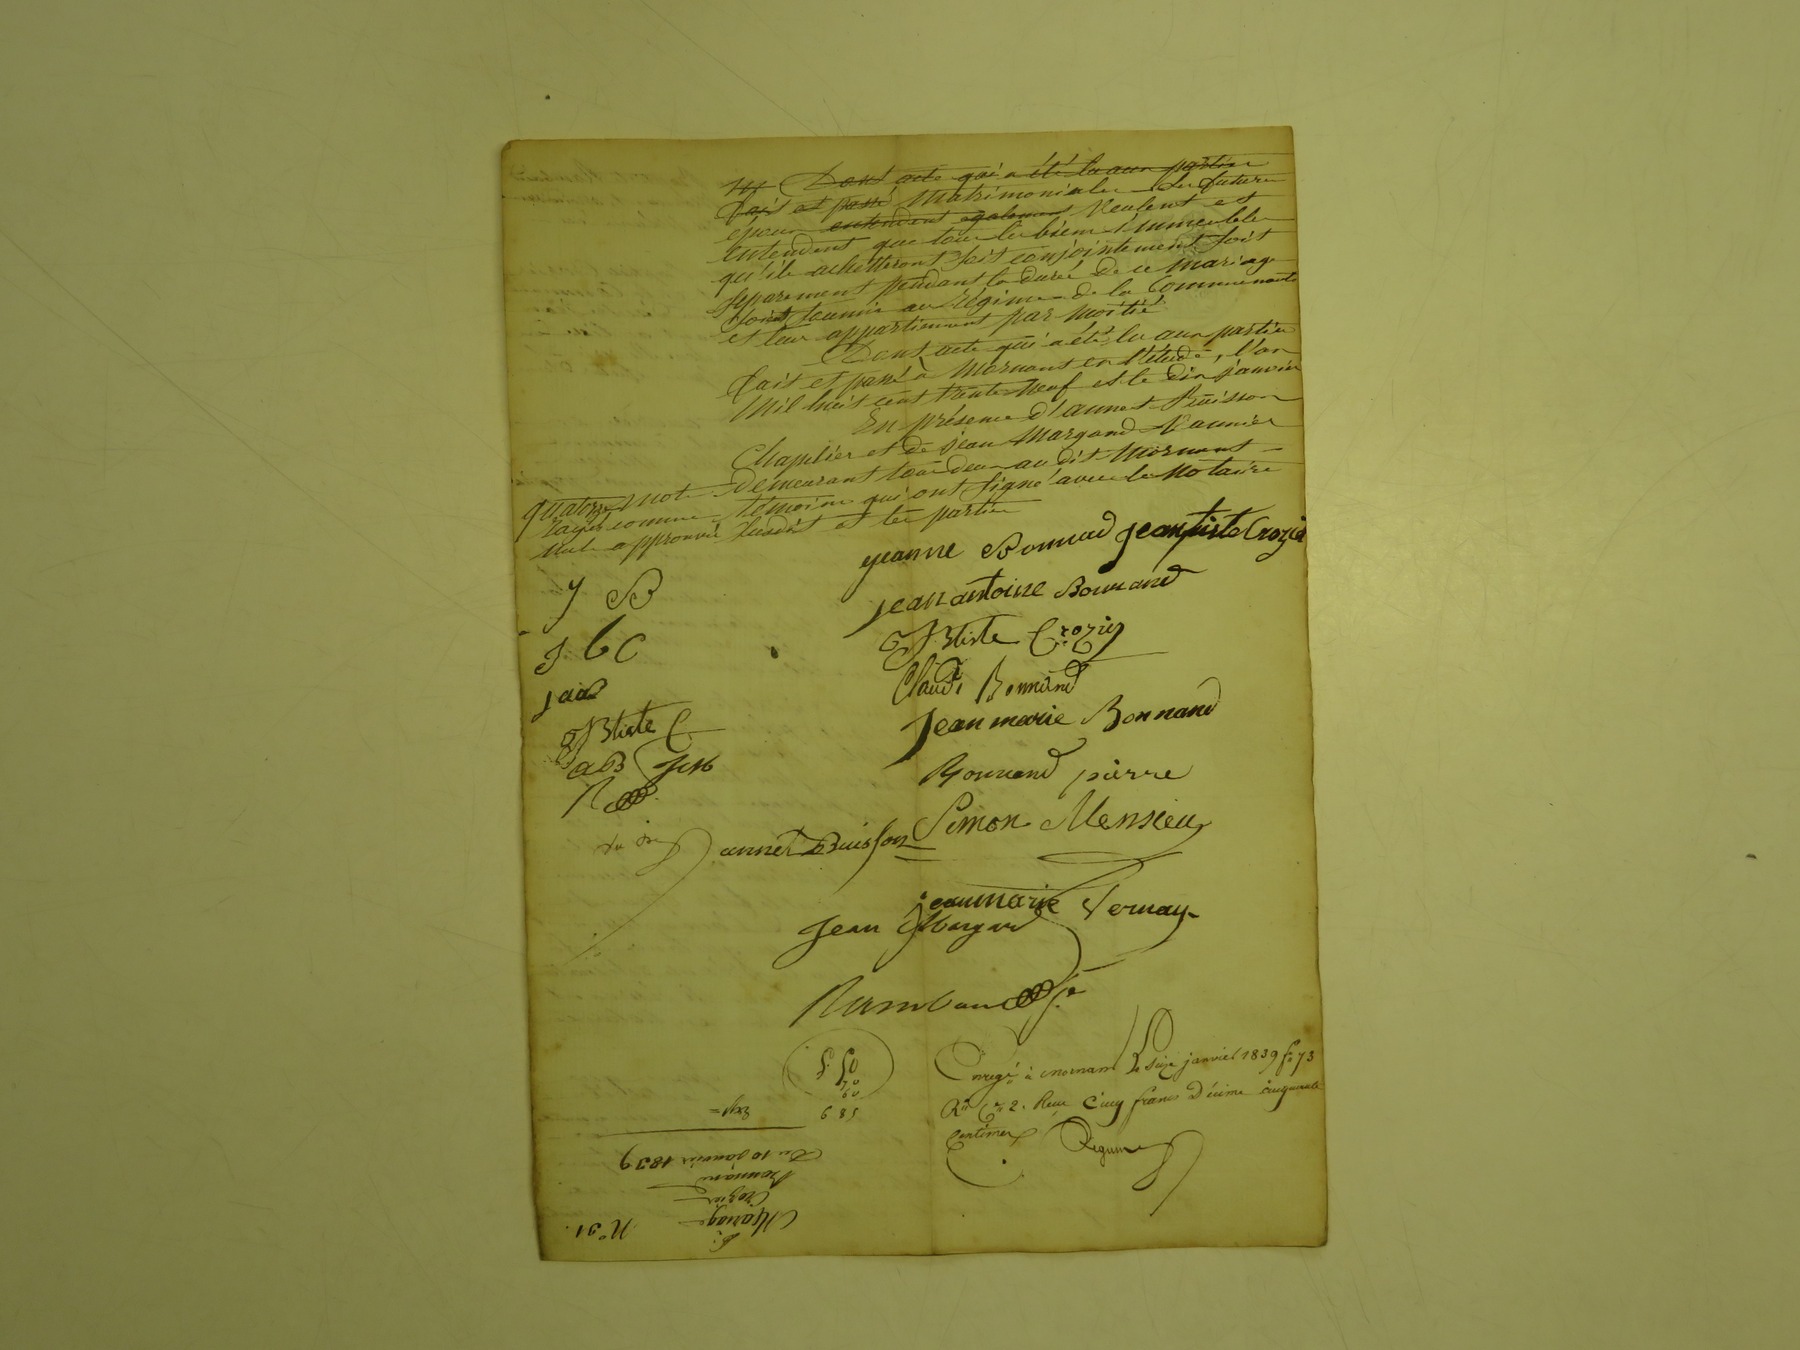 Dont acte qui a été lu aux parties
fait et passé Matrimoniales. Les futurs
epoux entendent egalement Veulent et
entendent que tous les biens immeubles
qu'ils achetteront soit conjointement soit
separement pendant la durée de ce mariage
soient soumis au Régime de la Communauté
et leur appartiennent par moitié
Dont acte qui a été lu aux parties
fait et passé à Mornant en l'étude, l'an
Mil huit cent trente neuf et le dix janvier
En présence d'annet Buisson
Chapelier et de jean Margand Vannier
Demeurant tous deux au dit Mornant
témoins qui ont signé avec le Notaire
et les parties
quatorze mots
rayés comme
nuls approuvé
jeanne Bonnad jean ptiste Crozier
J B
jean antoine Bonnand
J b C
J Btiste Crozier
j a B
Claude Bonnand
J Btiste C
Jean marie Bonnand
Bonnand pierre
annet Buisson Simon Mensieu
jean marie Vernay
Jean Margand
Enregé à mornant le seize janvier 1839 fo 73
Ro Ces 2. Reçu cinq francs Décime cinquante
Centimes
5 50
70
60
6 85
Exp =
Du 10 janvier 1839
Bonnand
Crozier
Mariage
No 31.